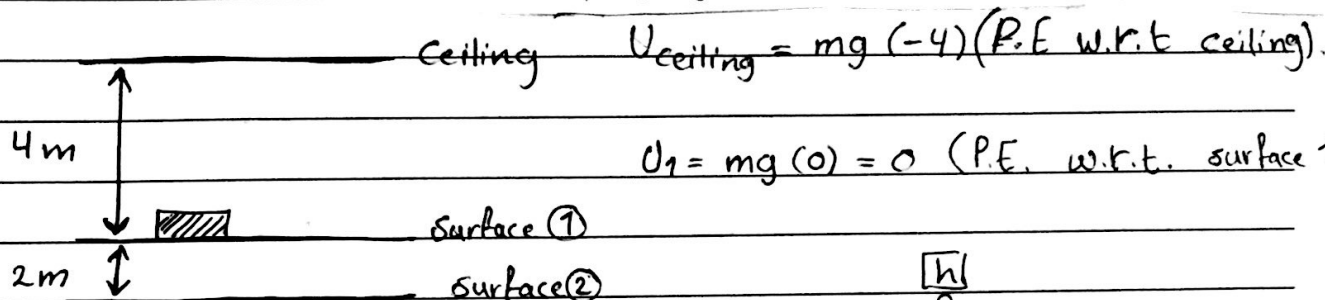 Ceiling U_ceiling = mg (-4) (P.E w.r.t ceiling).
4m
U₁ = mg (0) = 0 (P.E. w.r.t. surface
surface ①
2m surface②
h